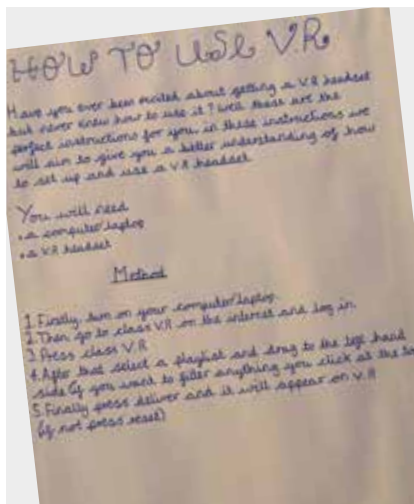 HOW TO USE V.R
Have you ever been excited about getting a V.R headset
but never knew how to use it? Well these are the
perfect instructions for you, in these instructions we
will aim to give you a better understanding of how
to set up and use a V.R headset.
You will need
• a computer/laptop
• a V.R headset
Method
1. Firstly, turn on your computer/laptop.
2. Then go to class V.R on the internet and log in.
3. Press class V.R
4. After that select a playlist and drag to the left hand
side (if you want to filter anything you click at the
5. Finally press deliver and it will appear on V.R
(if not press reset)